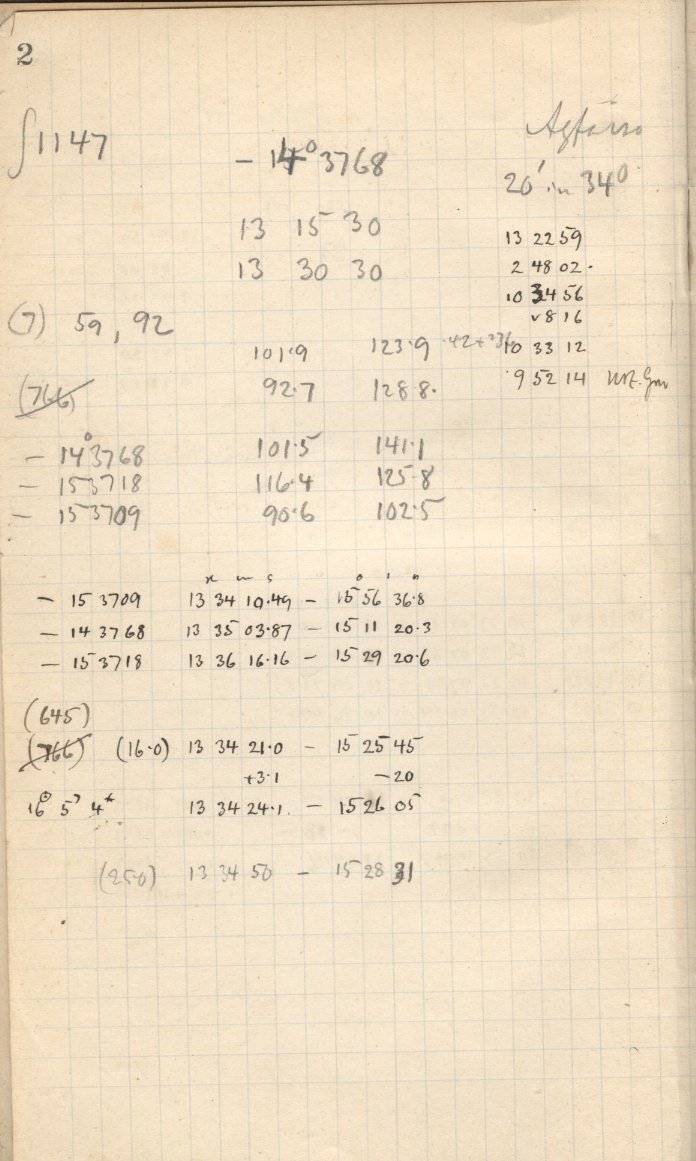 2
∫1147
- 14° 3768
20' in 34°
13 15 30
13 22 59
13 30 30
2 48 02.
10 34 56
8 16
(7) 59, 92
101.9 123.9
10 33 12
(766)
92.7 128.8.
9 52 14
- 14° 3768 101.5 141.1
- 15 3718 116.4 125.8
- 15 3709 90.6 102.5
h m s ° ' "
- 15 3709 13 34 10.49 - 15 56 36.8
- 14 3768 13 35 03.87 - 15 11 20.3
- 15 3718 13 36 16.16 - 15 29 20.6
(645)
(766) (16.0) 13 34 21.0 - 15 25 45
+3.1 -20
13 34 24.1. - 15 26 05
(25.0) 13 34 50 - 15 28 31